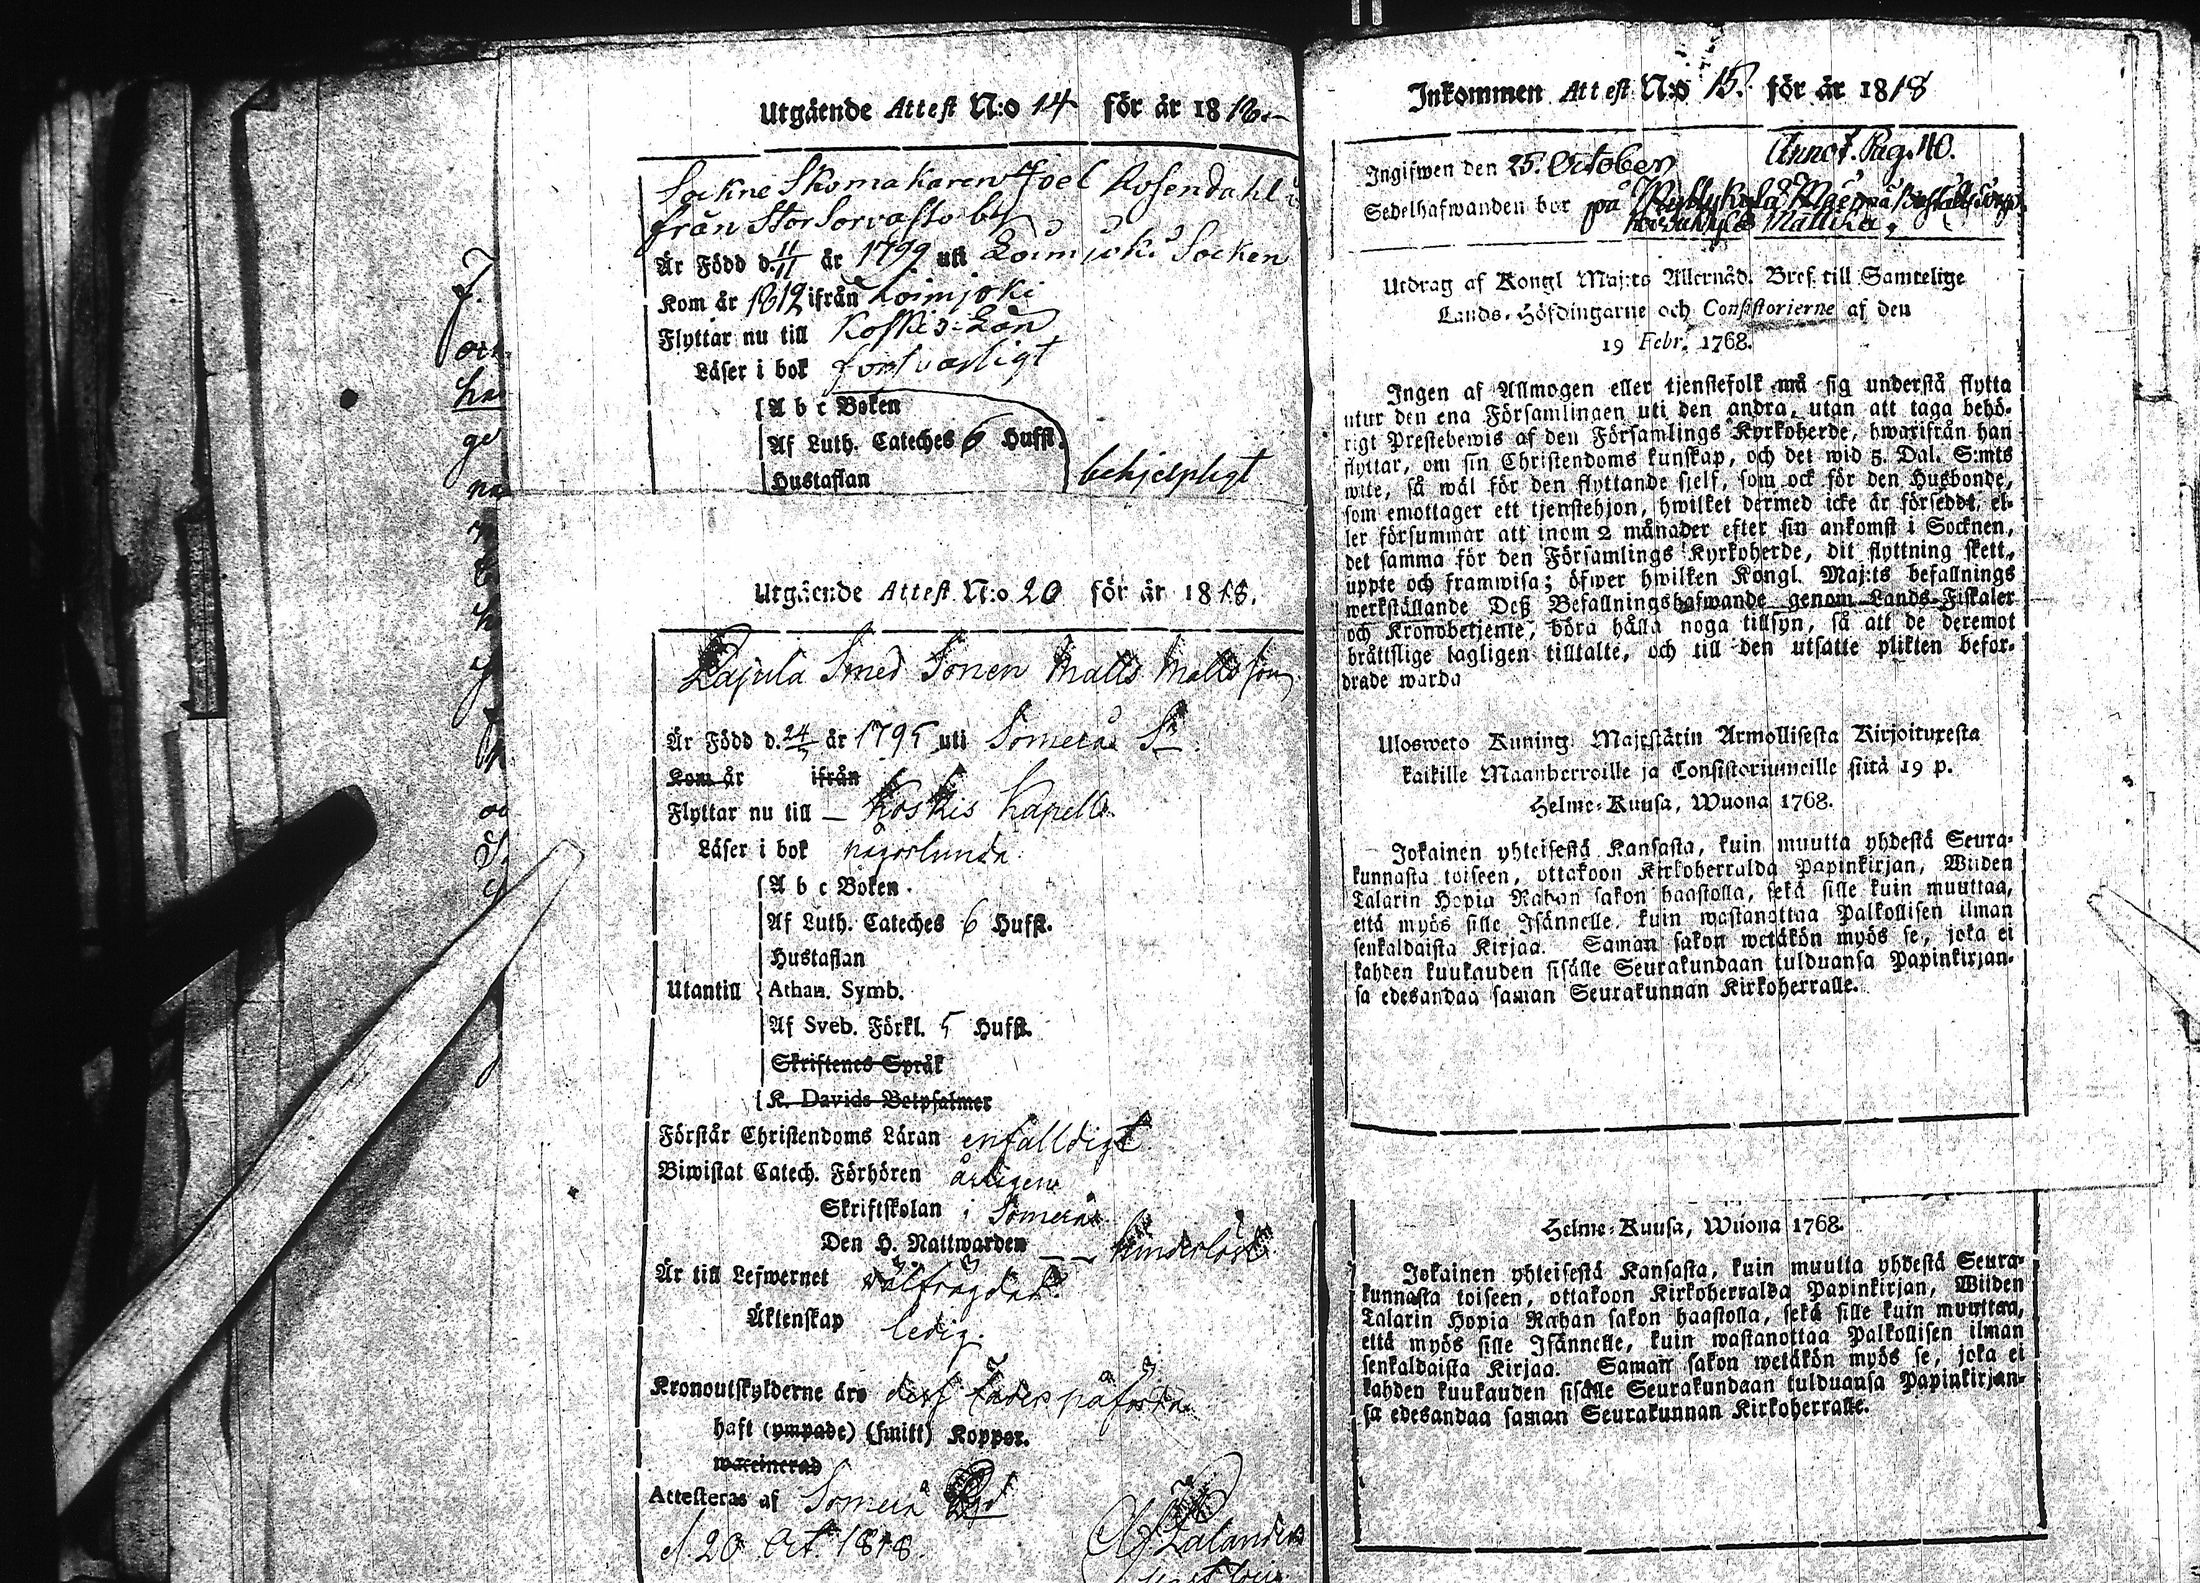 Utgående Attest N:o 14 för år 1818.
Sockne Skomakaren Joel Rosendahl
från StorSorvasto by
Är Född d. 11/11 år 1799 uti Loimjoki Socken
Kom år 1812 ifrån Loimjoki
Flyttar nu till Koskis Län
Läser i bok forsvarligt
A b c Boken
Af Luth. Cateches 6 Hufst.
Hustaflan behjelpligt
Utgående Attest N:o 20 för år 1818.
Pajula Smed Sonen Matts Mattsson
Är Född d. 24 år 1795 uti Somero Sn.
Kom år ifrån
Flyttar nu till — Koskis Kapell
Läser i bok någorlunda
A b c Boken
Af Luth. Cateches 6 Hufst.
Hustaflan
Utantill Athan. Symb.
Af Sveb. Förkl. 5 Hufst.
Skriftenes Språk
K. Davids Betpsalmer
Förstår Christendoms Läran enfalldigt
Biwistat Catech. Förhören årligen
Skriftskolan i Somero
Den H. Nattwarden — — hinderlöst
Är till Lefwernet välfrägdad
Äktenskap ledig.
Kronoutskylderne äro
haft (ympade) (smitt) Koppor.
waccinerad
Attesteras af Somero
d. 20 Oct. 1818.
Inkommen Attest N:o 15. för år 1818
Ingifwen den 25. October Annot. Pag. 40.
Sedelhafwanden bor på
Mattila.
Utdrag af Kongl Maj:ts Allernåd. Bref till Samtelige
Lands-Höfdingarne och Consistorierne af den
19 Febr. 1768.
Ingen af Allmogen eller tjenstefolk må sig understå flytta
utur den ena Församlingen uti den andra, utan att taga behö-
rigt Prestebewis af den Församlings Kyrkoherde, hwarifrån han
flyttar, om sin Christendoms kunskap, och det wid 5. Dal. S:mts
wite, så wäl för den flyttande sjelf, som ock för den Husbonde,
som emottager ett tjenstehjon, hwilket dermed icke är försedt, el-
ler försummar att inom 2 månader efter sin ankomst i Socknen,
det samma för den Församlings Kyrkoherde, dit flyttning skett,
uppte och framwisa; öfwer hwilken Kongl. Maj:ts befallnings
werkställande Deß Befallningshafwande genom Lands-Fiskaler
och Kronobetjente, böra hålla noga tillsyn, så att de deremot
bråttslige lagligen tilltalte, och till den utsatte plikten befor-
drade warda
Ulosweto Kuning. Majestätin Armollisesta Kirjoituxesta
kaikille Maanherroille ja Consistoriumeille siitä 19 p.
Helme-Kuusa, Wuona 1768.
Jokainen yhteisestä Kansasta, kuin muutta yhdestä Seura-
kunnasta toiseen, ottakoon Kirkoherralda Papinkirjan, Wiiden
Talarin Hopia Rahan sakon haastolla, sekä sille kuin muuttaa,
että myös sille Isännelle, kuin wastanottaa Palkollisen ilman
senkaldaista Kirjaa. Saman sakon wetäkön myös se, joka ei
kahden kuukauden sisälle Seurakundaan tulduansa Papinkirjan-
sa edesandaa saman Seurakunnan Kirkoherralle.
Helme-Kuusa, Wuona 1768.
Jokainen yhteisestä Kansasta, kuin muutta yhdestä Seura-
kunnasta toiseen, ottakoon Kirkoherralda Papinkirjan, Wiiden
Talarin Hopia Rahan sakon haastolla, sekä sille kuin muuttaa,
että myös sille Isännelle, kuin wastanottaa Palkollisen ilman
senkaldaista Kirjaa. Saman sakon wetäkön myös se, joka ei
kahden kuukauden sisälle Seurakundaan tulduansa Papinkirjan-
sa edesandaa saman Seurakunnan Kirkoherralle.